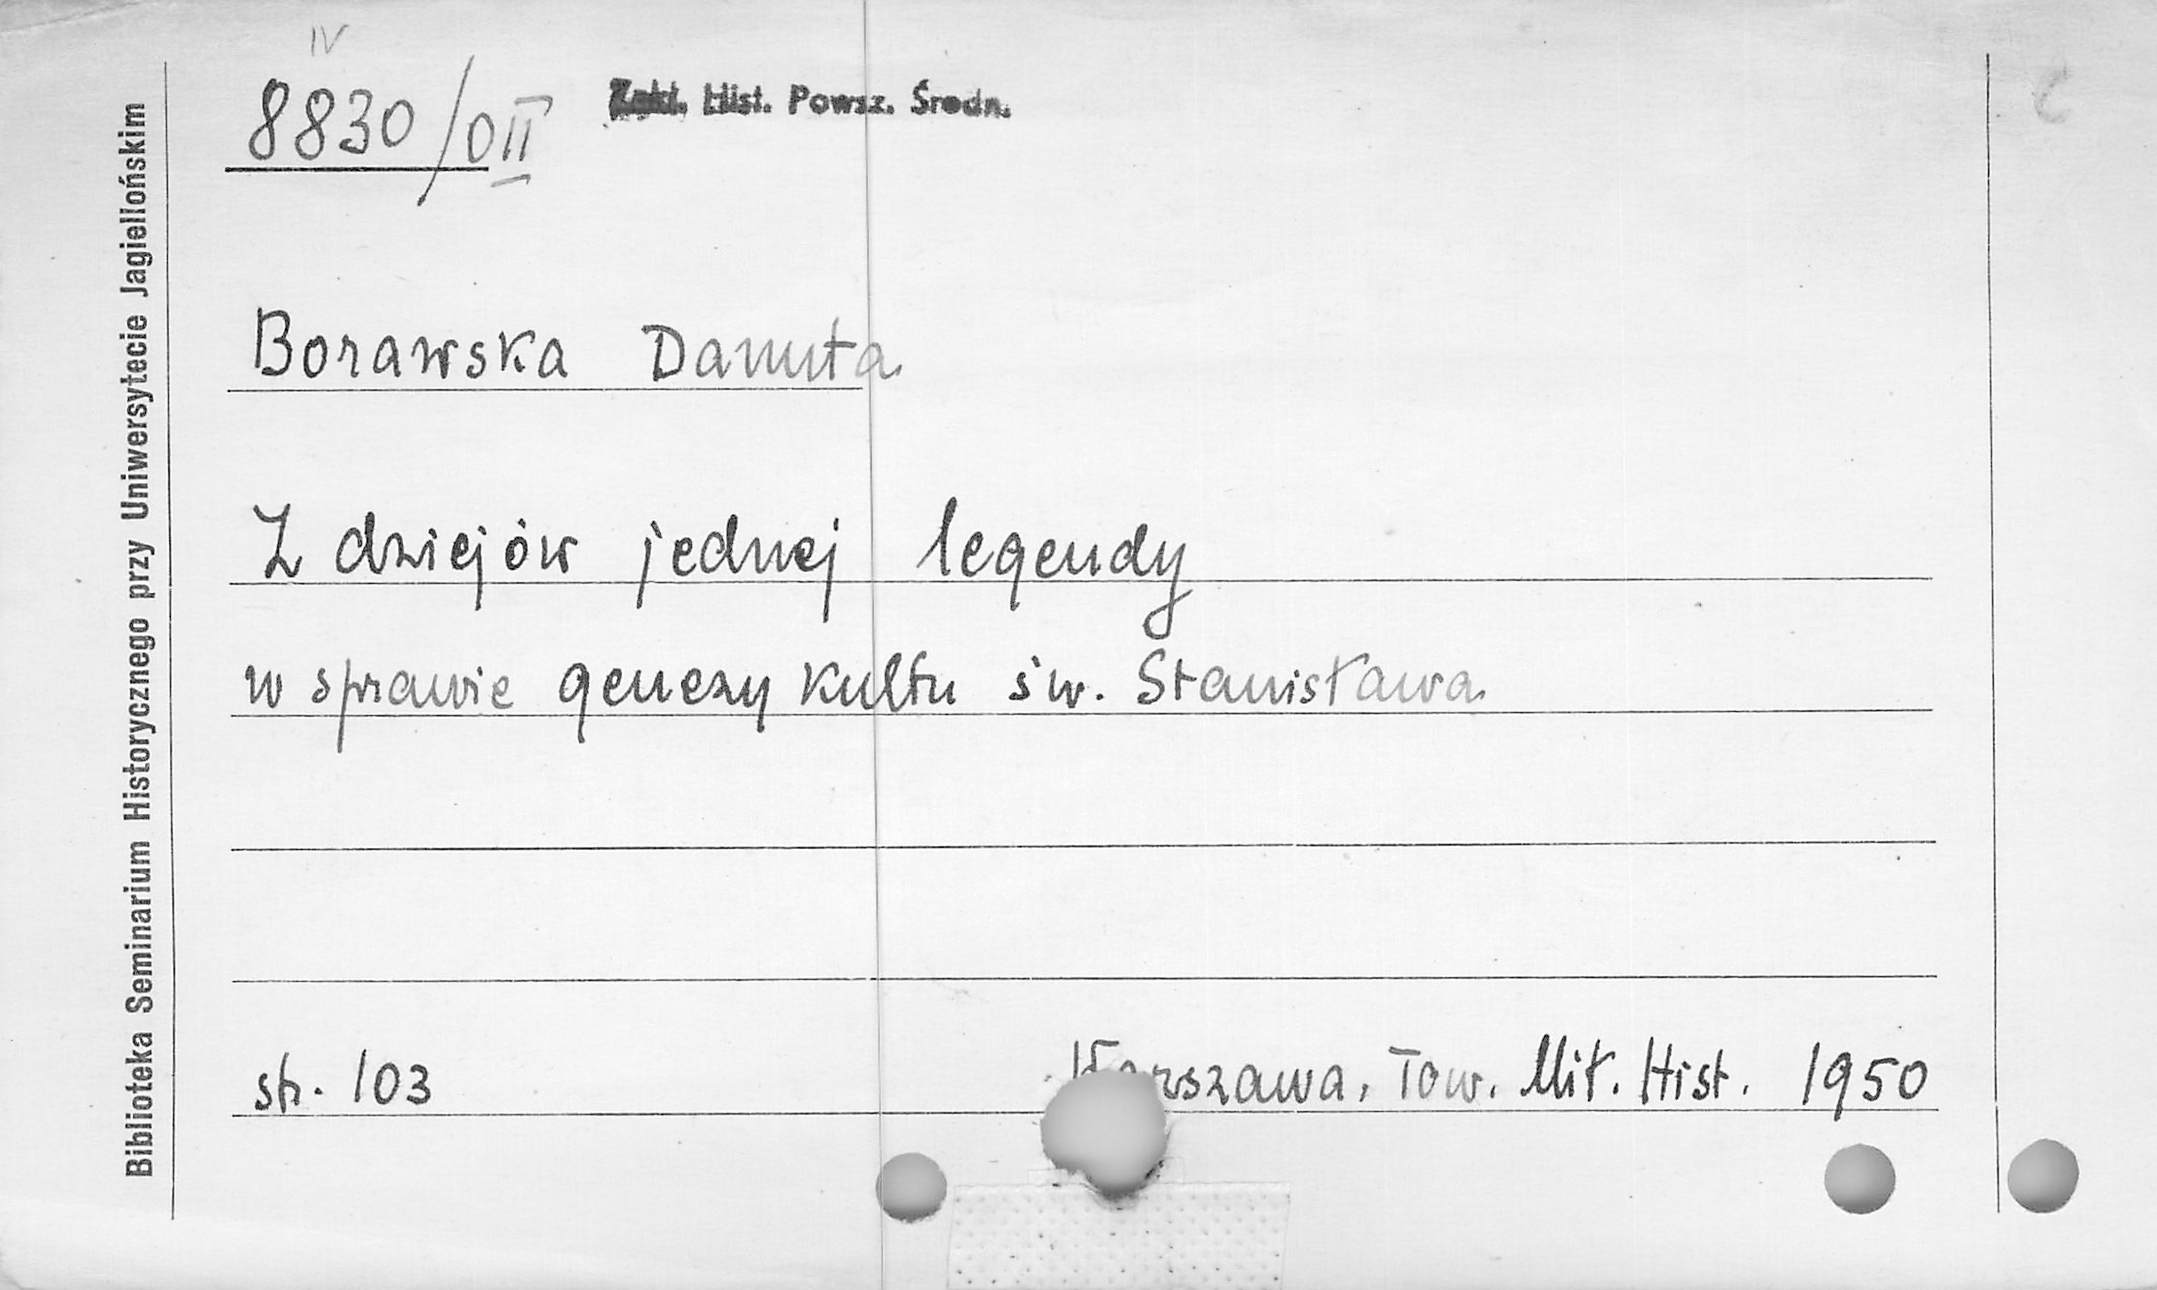 IV
8830/OII
Zakł. Hist. Powsz. Średn.
C
Borawska Danuta
Z dziejów jednej legendy
w sprawie genezy kultu św. Stanisława
str. 103
Warszawa, Tow. Mił. Hist. 1950
Biblioteka Seminarium Historycznego przy Uniwersytecie Jagiellońskim